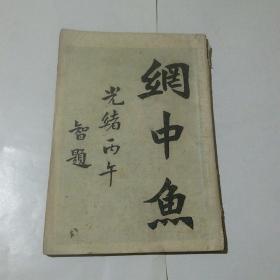 網中魚
光緒丙午
智題